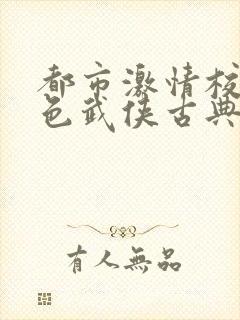 都市激情校
色武侠古典
有人無品